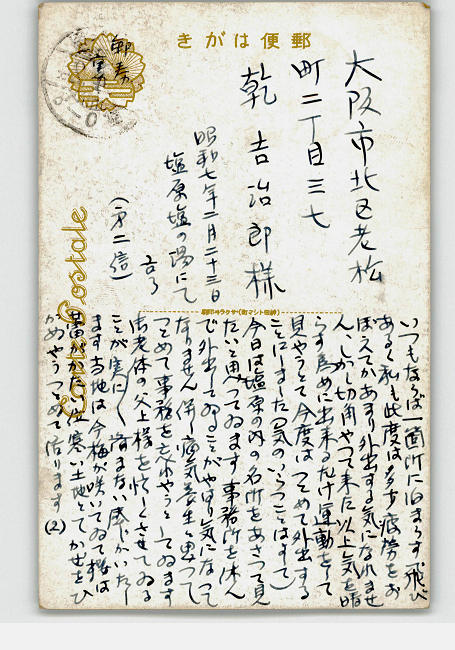 郵便はがき
大阪市北区老松
町二丁目三七
乾吉治郎様
昭和七年二月二十三日
塩原塩の湯にて
(第二信)
Carte Postale
いつもならば一箇所に泊まらず飛び
あるく私も此度は多少疲労をお
ぼえてかあまり外出する気になれませ
ん、しかし切角やつて来た以上気を晴
らす為めに出来るだけ運動をして
見やうとて今度はつとめて外出する
ことにしました(気のいらつことはすて)
今日は塩原の内の名所をあさつて見
たいと思つてゐます 事務所を休ん
で外出してゐることがやはり気になつて
なりません 併し病気養生と思つて
つとめて事務を忘れやうとしてゐます
御老体の父上様を忙しくさせてゐる
ことが実に 済まない感じがいたし
ます 当地は今梅が咲いてゐて桜は
蕾がかたい位 寒い土地とてかぜをひ
かぬやうつとめて居ります (2)